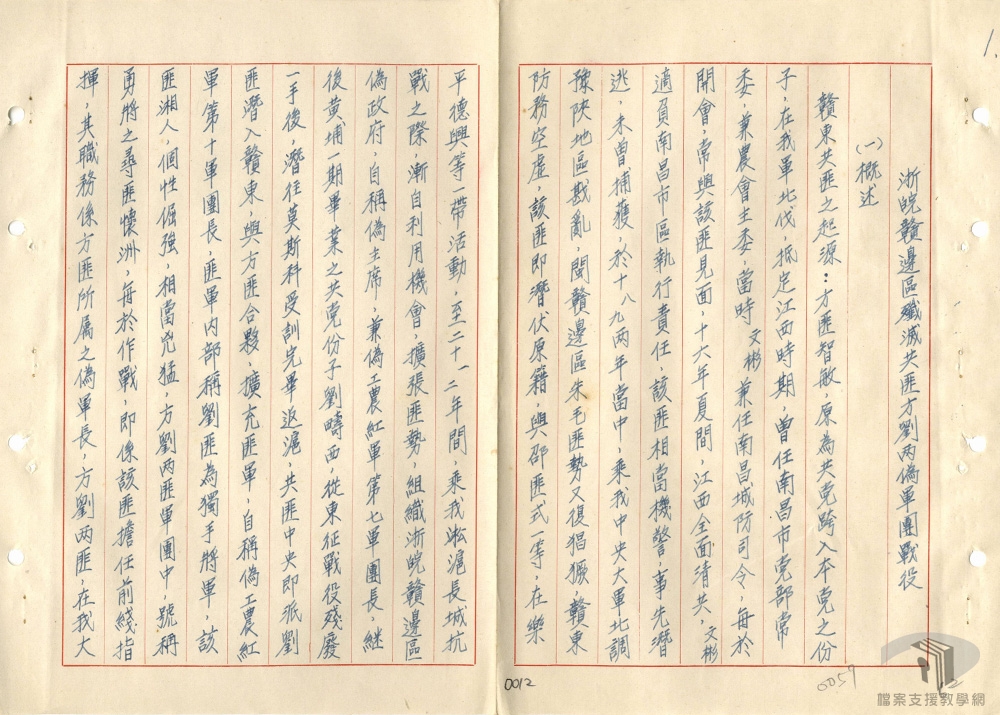 1.
浙皖贛邊區殲滅共匪方劉兩偽軍團戰役
(一)概述
贛東共匪之起源：方匪智敏，原為共党跨入本党之份
子，在我軍北伐，抵定江西時期，曾任南昌市党部常
委，兼農會主委，當時文彬兼任南昌城防司令，每於
開會，常與該匪見面，十六年夏間，江西全面清共，文彬
適負南昌市區執行責任，該匪相當機警，事先潛
逃，未曾捕獲，於十八九兩年當中，乘我中央大軍北調
豫陝地區戡亂，閩贛邊區朱毛匪勢又復猖獗，贛東
防務空虛，該匪即潛伏原籍，與邵匪式一等，在樂
平德興等一帶活動，至二十一二年間，乘我淞滬長城抗
戰之際，漸自利用機會，擴張匪勢，組織浙皖贛邊區
偽政府，自稱偽主席，兼偽工農紅軍第七軍團長，繼
後黃埔一期畢業之共党份子劉疇西，從東征戰役殘廢
一手後，潛往莫斯科受訓完畢返滬，共匪中央即派劉
匪潛入贛東，與方匪合夥，擴充匪軍，自稱偽工農紅
軍第十軍團長，匪軍內部稱劉匪為獨手將軍，該
匪湘人，個性倔強，相當兇猛，方劉兩匪軍團中，號稱
勇將之尋匪懷洲，每於作戰，即係該匪擔任前綫指
揮，其職務係方匪所屬之偽軍長，方劉兩匪，在我大
0012
0059
檔案支援教學網